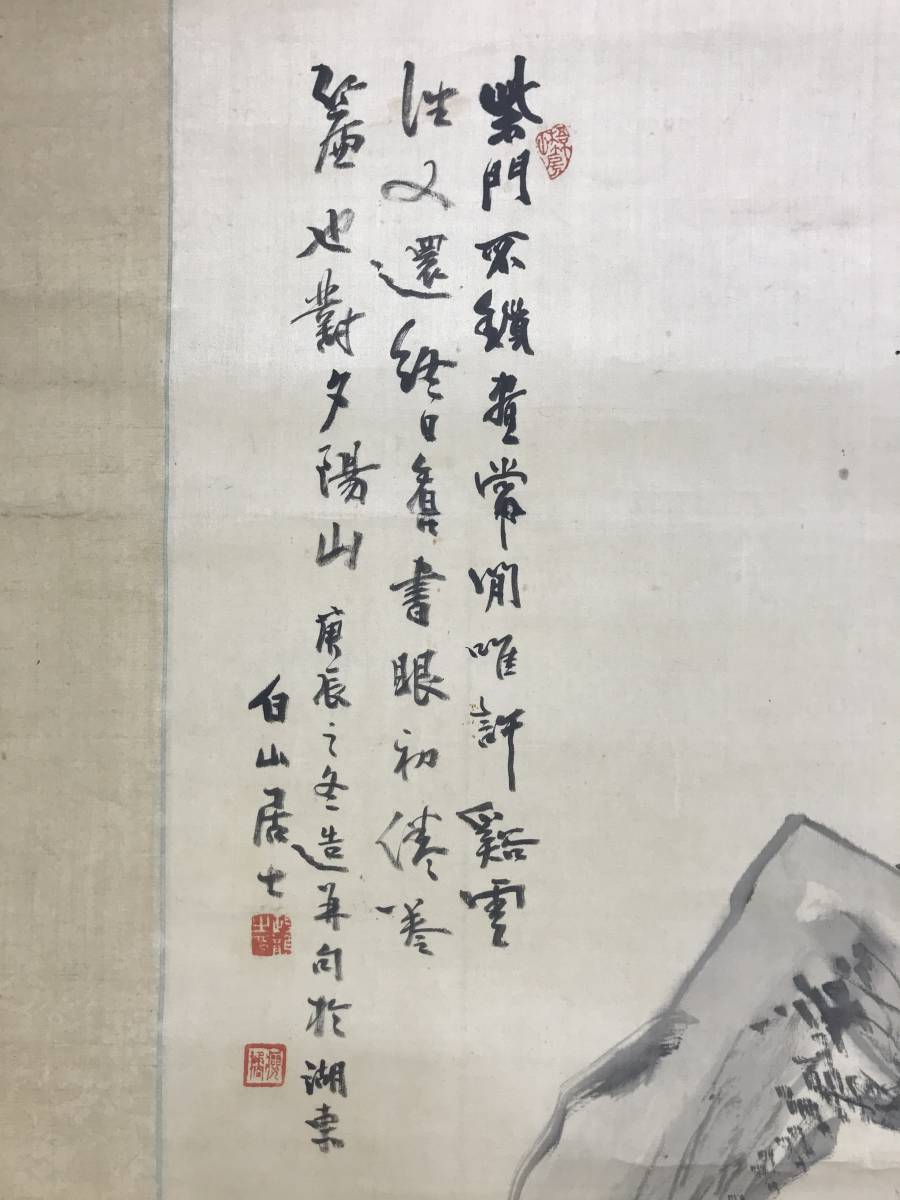 柴門不鎖晝常閒唯許谿雲
往又還終日看書眼初倦捲
簾也對夕陽山 庚辰之冬造并句於湖東
白山居士